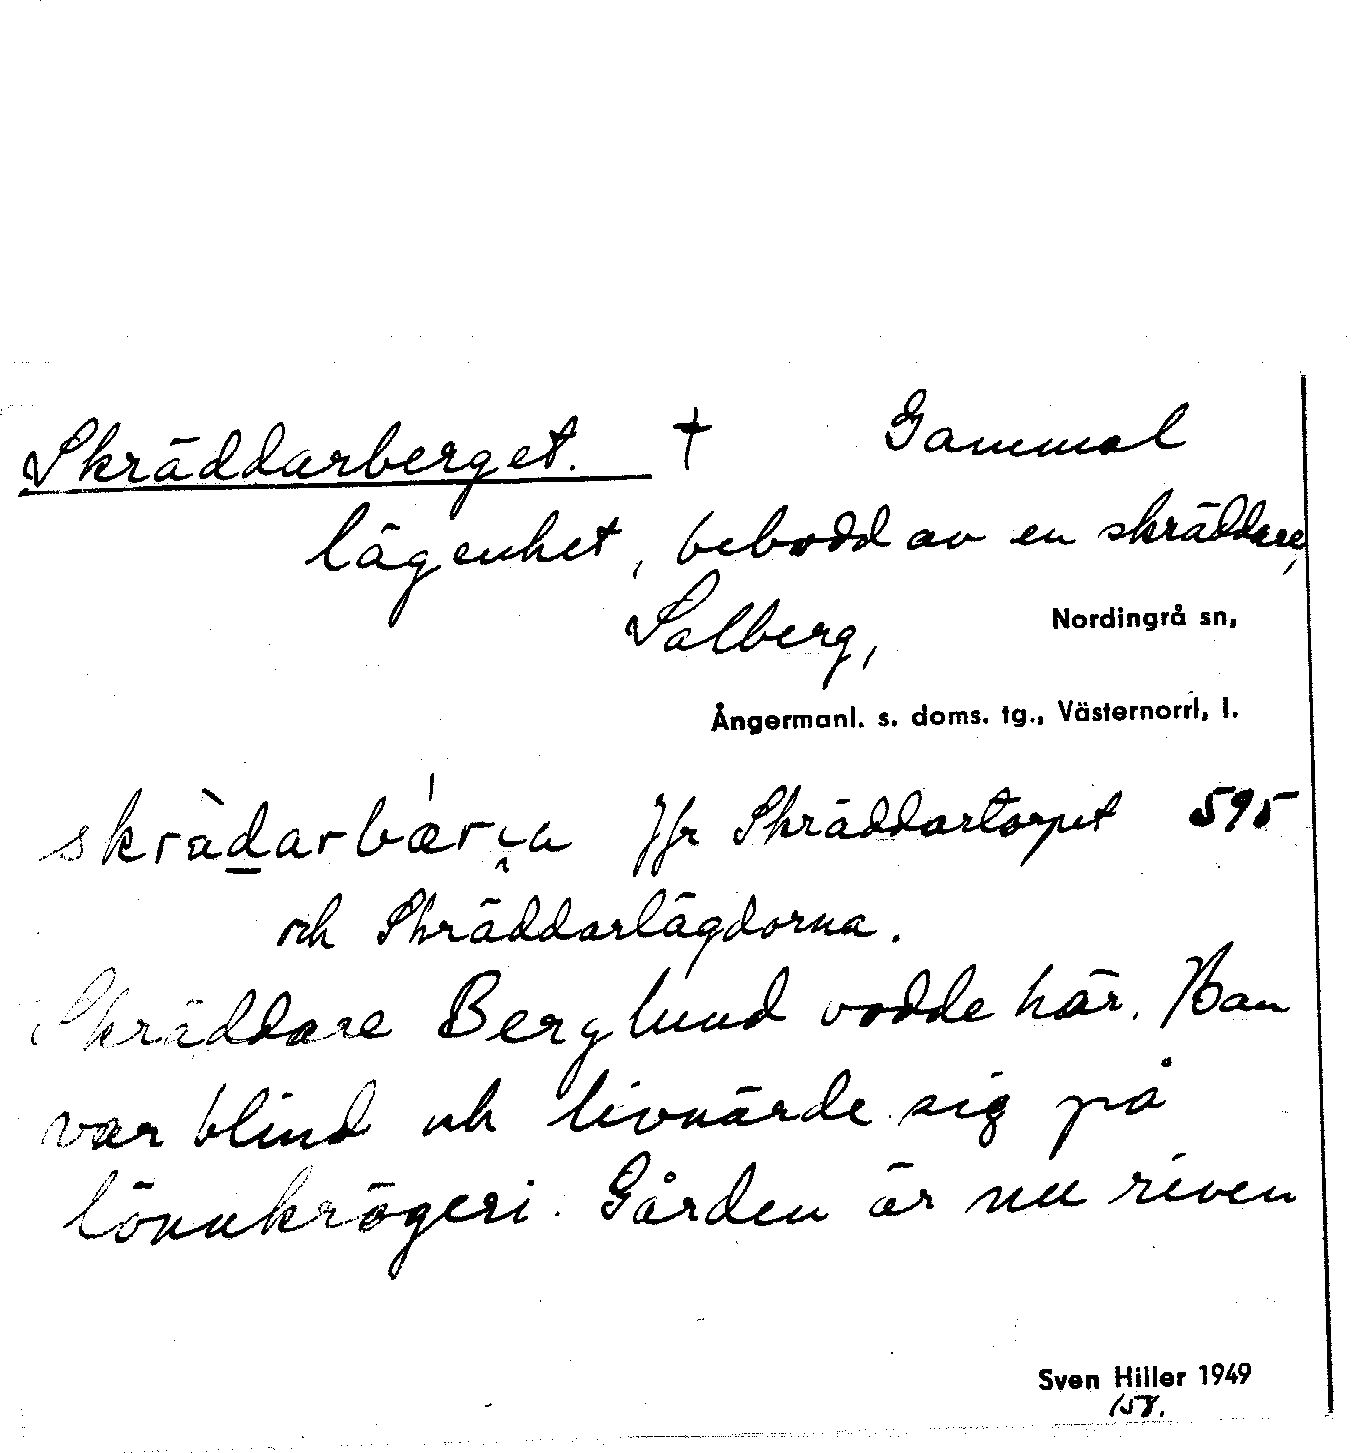 Skräddarberget. † Gammal
lägenhet, bebodd av en skräddare,
Salberg, Nordingrå sn,
Ångermanl. s. doms. tg., Västernorrl, l.
Jfr Skräddartorpet 595
och Skräddarlägdorna.
Skräddare Berglund bodde här. Han
var blind och livnärde sig på
lönnkrögeri. Gården är nu riven
Sven Hiller 1949
158.